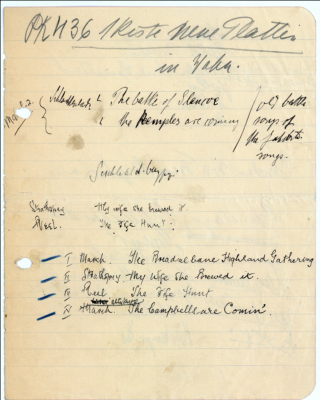 PK 436 1 Kiste neue Platten
in Yoker.
The battle of Glencoe
the Kemples are coming
old battle
songs of
the Jakobite
songs.
Strathspey My wife she brewed it
Reel. The Fife Hunt.
I March. The Breadalbane Highland Gathering
II Strathspey My Wife She Brewed it.
III Reel The Fife Hunt
IV March. The Campbells are Comin'.